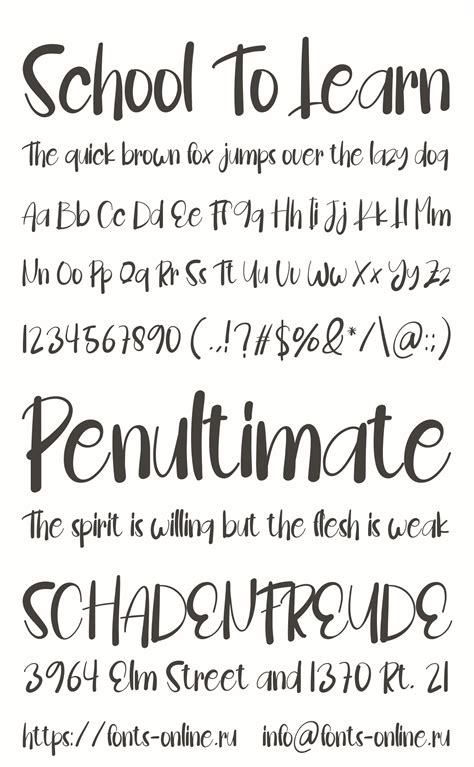 School To Learn
The quick brown fox jumps over the lazy dog
Aa Bb Cc Dd Ee Ff Gg Hh Ii Jj Kk Ll Mm
Nn Oo Pp Qq Rr Ss Tt Uu Vv Ww Xx Yy Zz
1234567890 (.,!?#$%&*/\@:;)
Penultimate
The spirit is willing but the flesh is weak
SCHADENFREUDE
3964 Elm Street and 1370 Rt. 21
https://fonts-online.ru info@fonts-online.ru